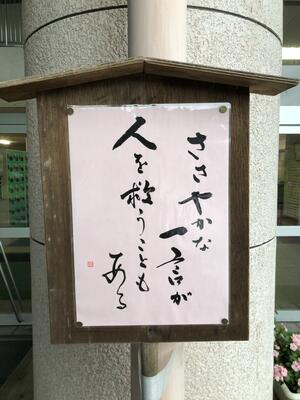 ささやかな
一言が
人を救うことも
ある